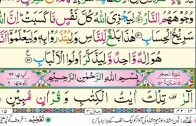 النَّارُ لِيَجْزِيَ اللّٰهُ كُلَّ نَفْسٍ مَّا كَسَبَتْ اِنَّ
سَرِيْعُ الْحِسَابِ هٰذَا بَلٰغٌ لِّلنَّاسِ وَلِيُنْذَرُوْا بِهٖ وَلِيَعْلَمُوْٓا
هُوَ اِلٰهٌ وَّاحِدٌ وَّلِيَذَّكَّرَ اُولُوا الْاَلْبَابِ
بِسْمِ اللّٰهِ الرَّحْمٰنِ الرَّحِيْمِ
الٓرٰ تِلْكَ اٰيٰتُ الْكِتٰبِ وَقُرْاٰنٍ مُّبِيْنٍ